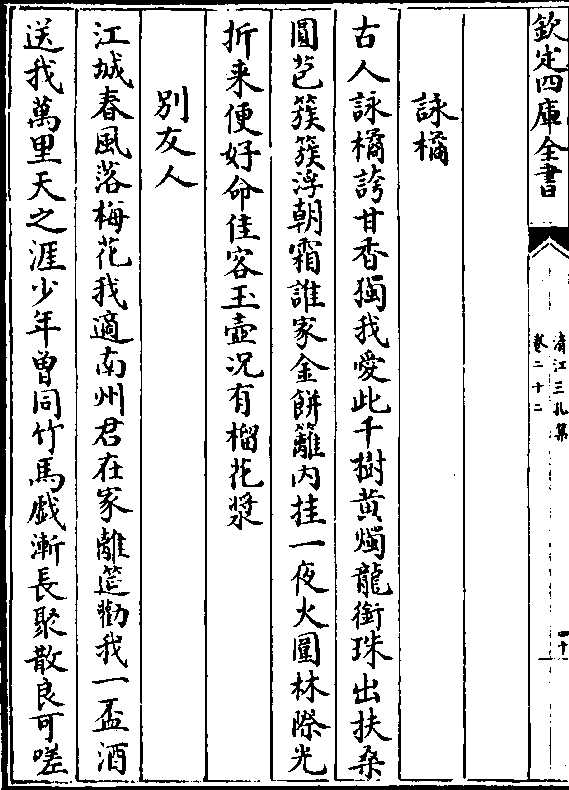 欽定四庫全書
清江三孔集
卷二十二
四十
詠橘
古人詠橘誇甘香獨我愛此千樹黄燭龍銜珠出扶桑
圓苞簇簇浮朝霜誰家金餅籬内挂一夜火圍林際光
折来便好命佳客玉壺况有榴花漿
别友人
江城春風落梅花我適南州君在家離筵勸我一盃酒
送我萬里天之涯少年曽同竹馬戯漸長聚散良可嗟